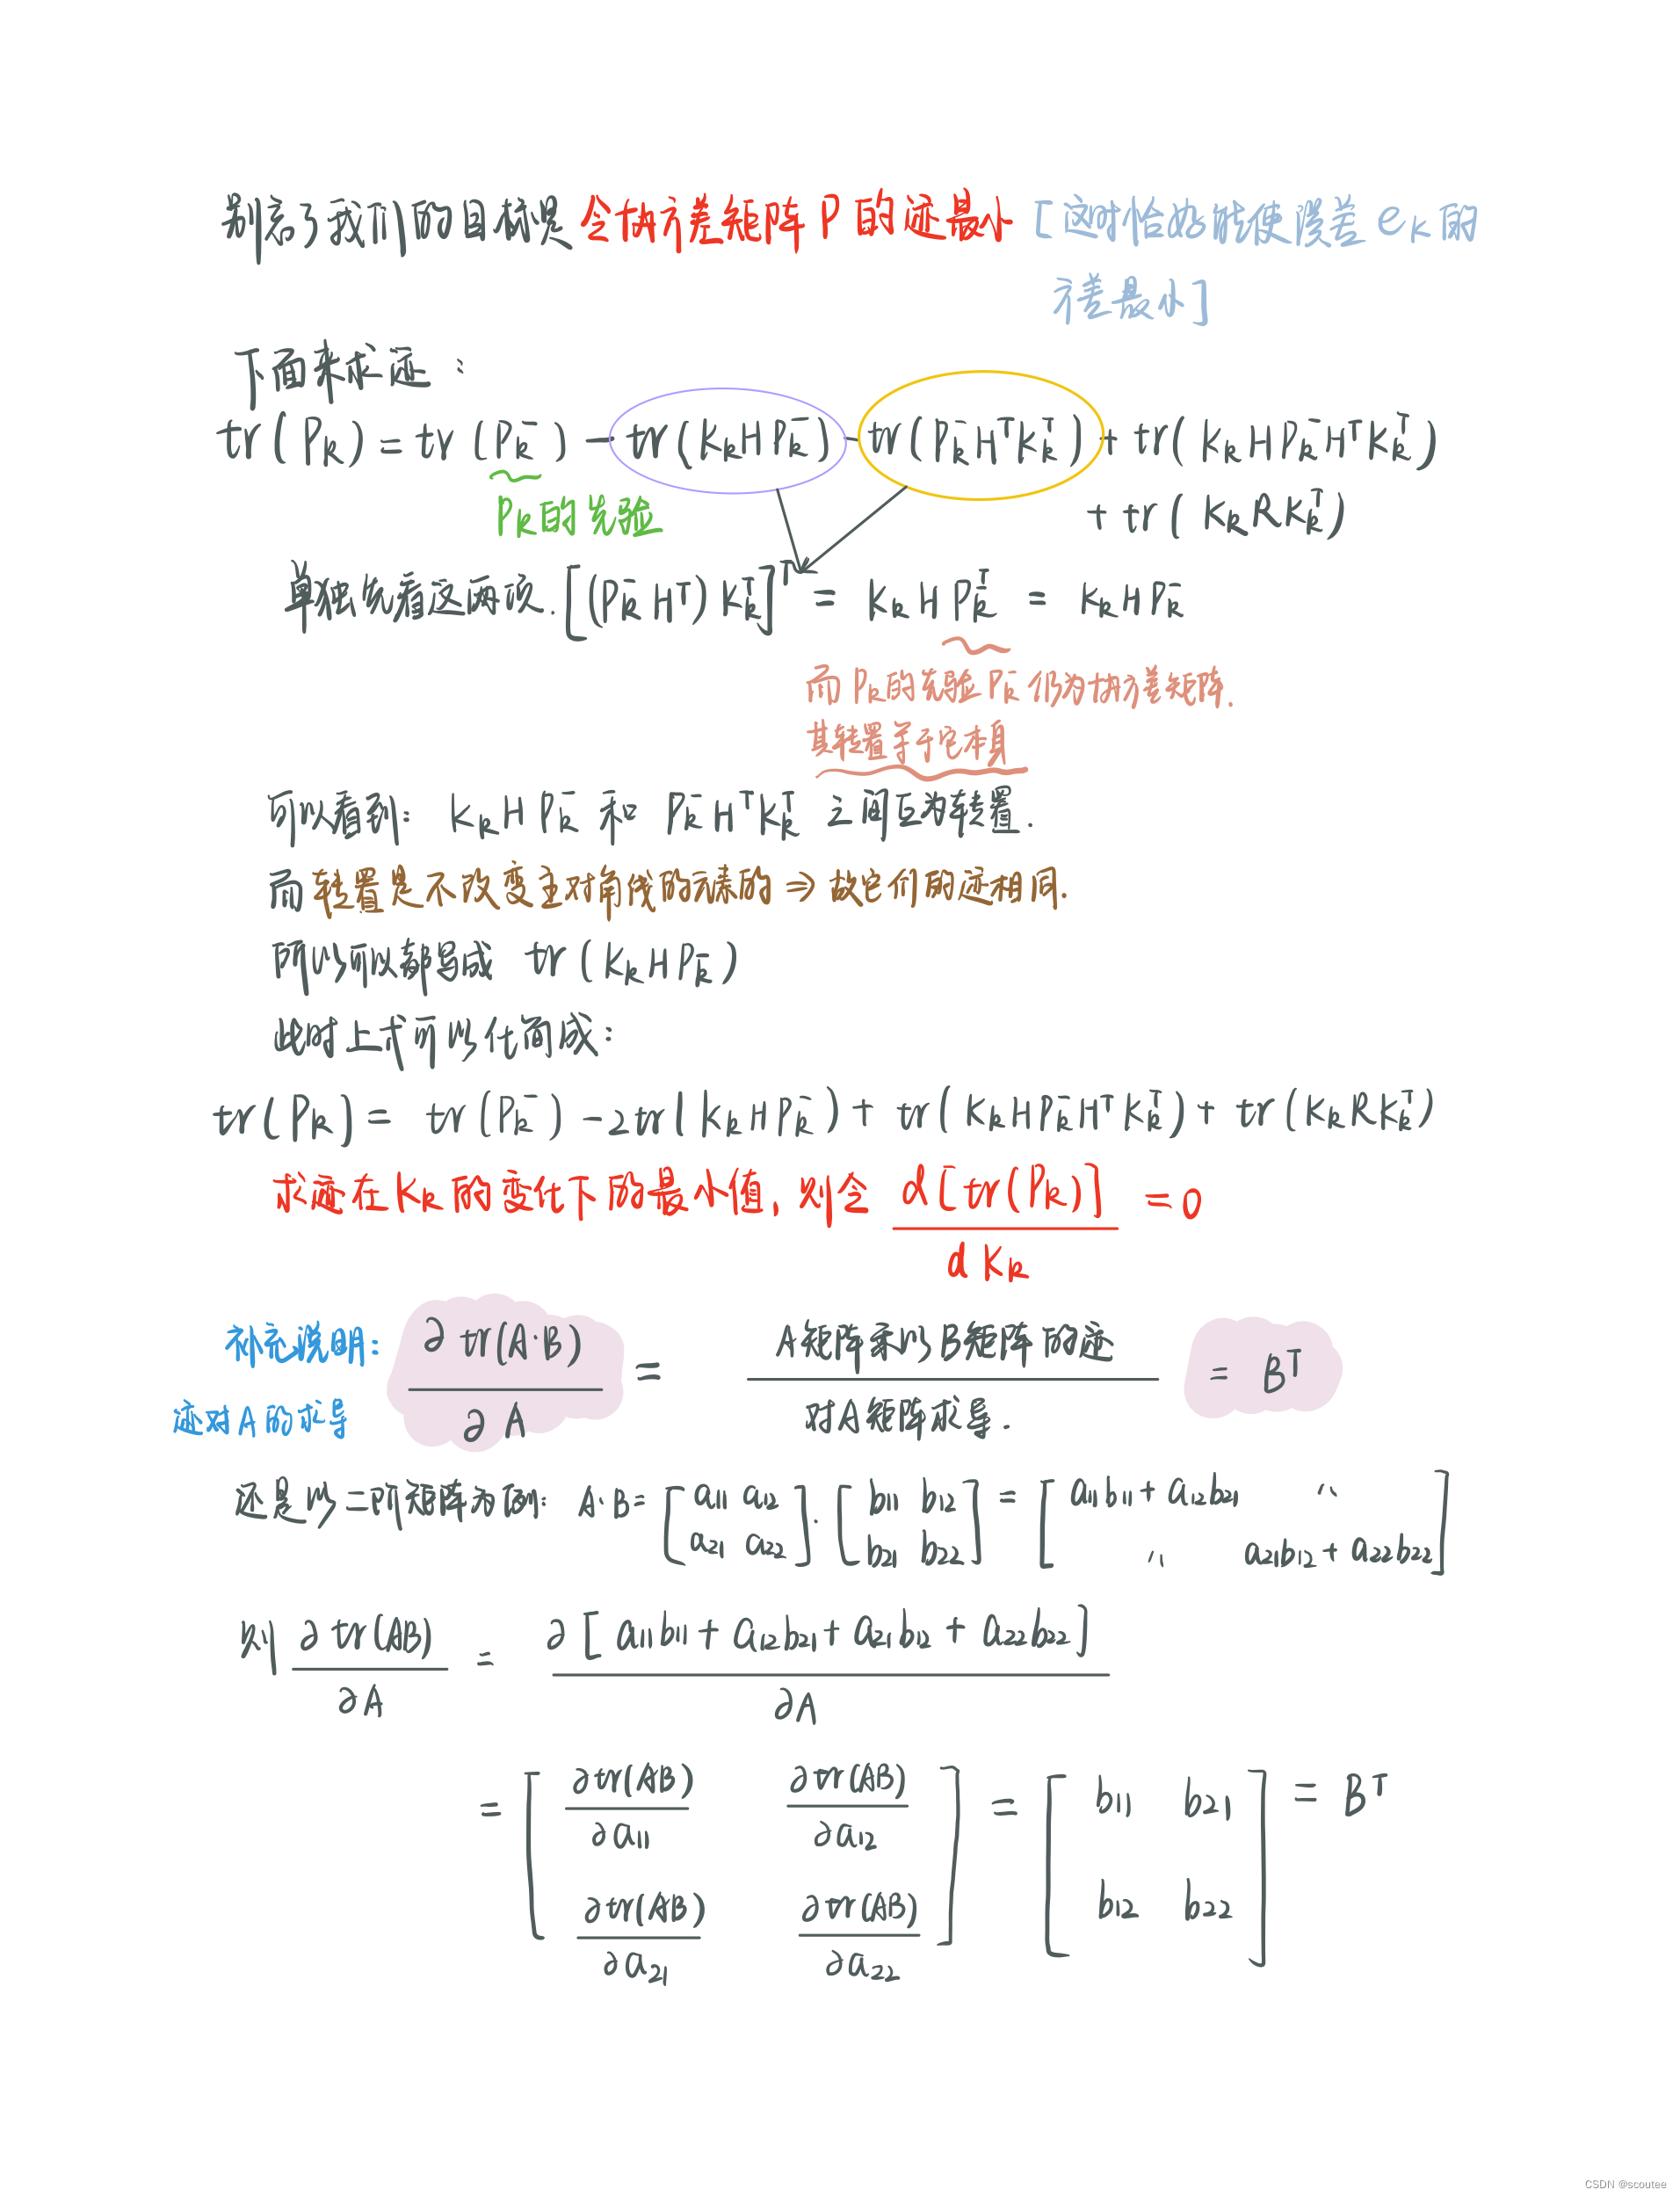 别忘了我们的目标是 令协方差矩阵 P 的迹最小 [这时恰好能使误差 e_k 的
方差最小]
下面来求迹:
tr(P_k) = tr(P_k^-) - tr(K_k H P_k^-) - tr(P_k^- H^T K_k^T) + tr(K_k H P_k^- H^T K_k^T)
+ tr(K_k R K_k^T)
P_k的先验
单独先看这两项. [(P_k^- H^T) K_k^T]^T = K_k H P_k^{-T} = K_k H P_k^-
而 P_k的先验 P_k^- 仍为协方差矩阵.
其转置等于它本身
可以看到: K_k H P_k^- 和 P_k^- H^T K_k^T 之间互为转置.
而转置是不改变主对角线的元素的 ⇒ 故它们的迹相同.
所以可以都写成 tr(K_k H P_k^-)
此时上式可以化简成:
tr(P_k) = tr(P_k^-) - 2tr(K_k H P_k^-) + tr(K_k H P_k^- H^T K_k^T) + tr(K_k R K_k^T)
求迹在 K_k 的变化下的最小值, 则令 d[tr(P_k)] / d K_k = 0
补充说明: ∂ tr(A·B) / ∂ A = A矩阵乘以B矩阵的迹 / 对A矩阵求导. = B^T
迹对 A 的求导
还是以二阶矩阵为例: A·B = [a11 a12; a21 a22] · [b11 b12; b21 b22] = [a11b11 + a12b21 ‥; ‥ a21b12 + a22b22]
则 ∂ tr(AB) / ∂A = ∂ [a11b11 + a12b21 + a21b12 + a22b22] / ∂A
= [∂tr(AB)/∂a11 ∂tr(AB)/∂a12; ∂tr(AB)/∂a21 ∂tr(AB)/∂a22] = [b11 b21; b12 b22] = B^T
CSDN @scoutee